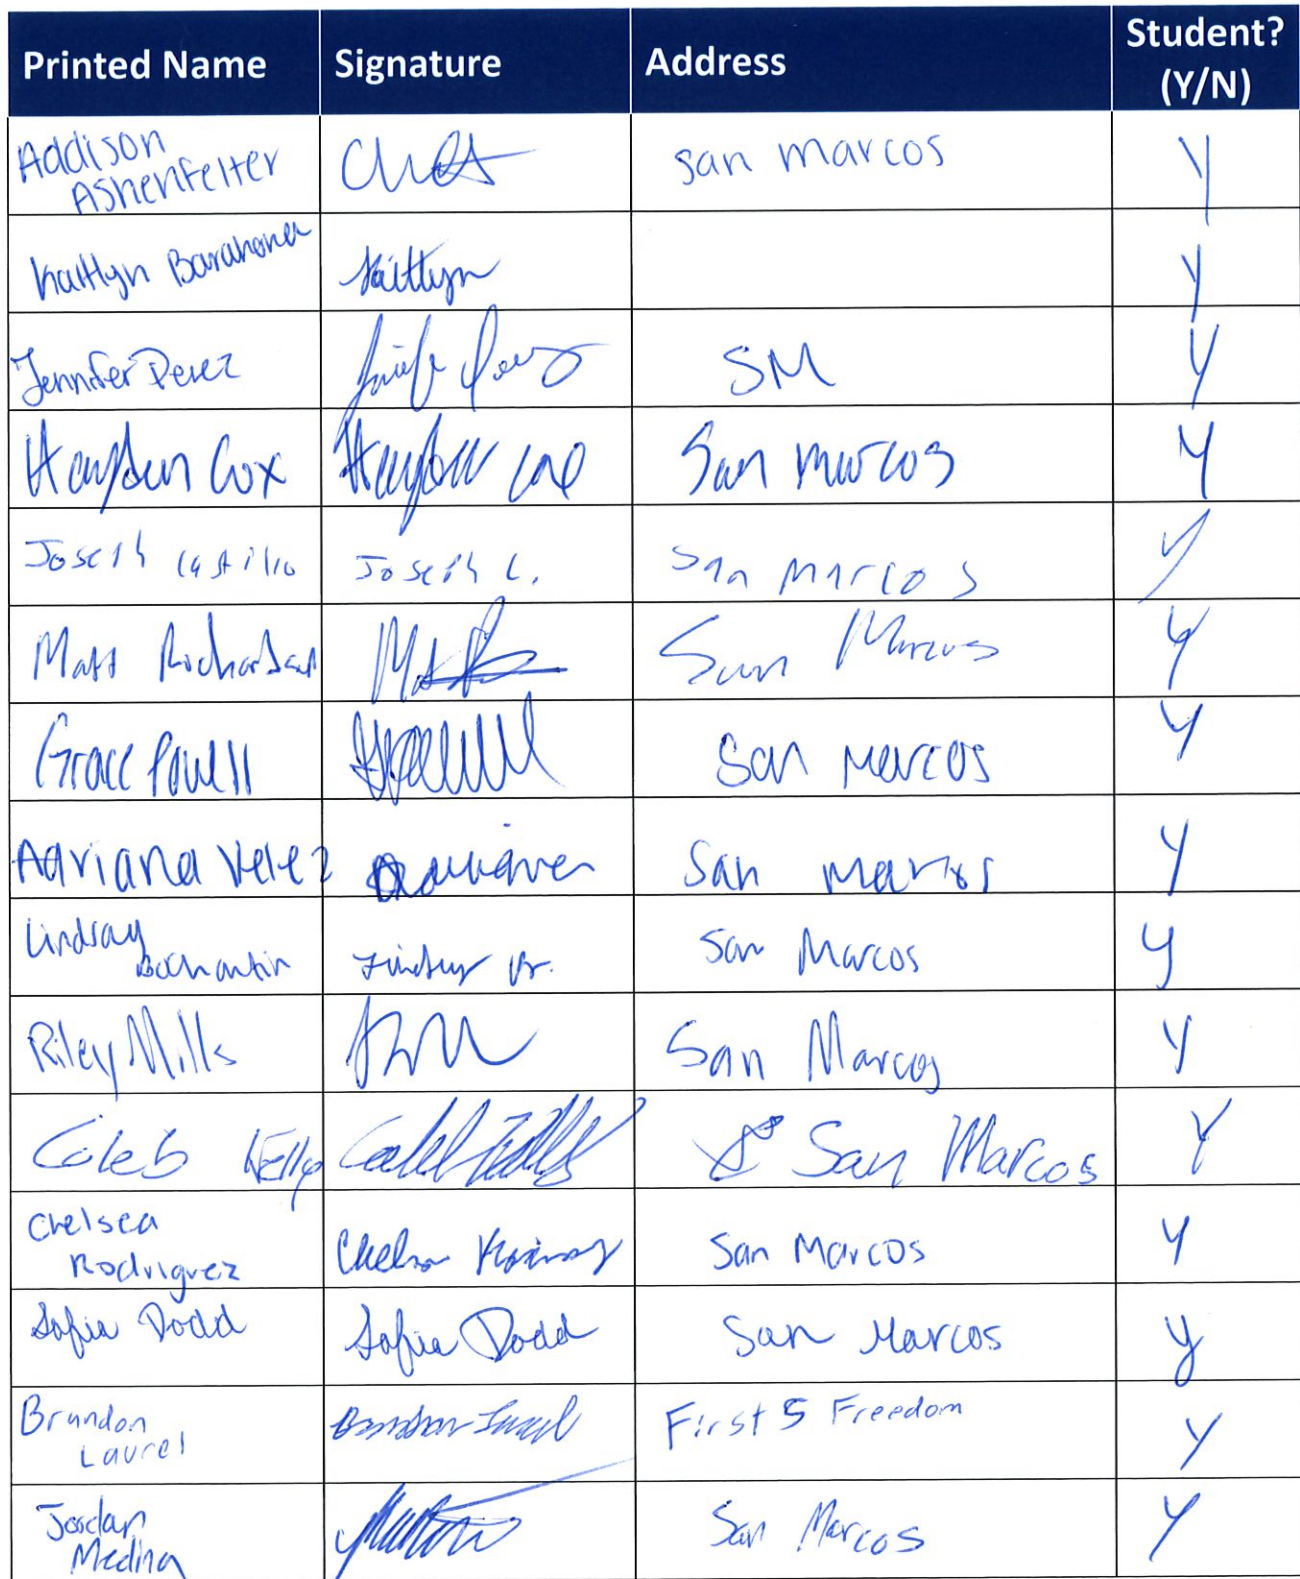 Printed Name Signature Address Student? (Y/N)
Addison Ashenfelter San marcos Y
Kaitlyn Barahona Kaitlyn Y
Jennifer Perez SM Y
Hayden Cox Hayden San Marcos Y
Joseph Castillo Joseph C. San Marcos Y
Matt Richardson San Marcos Y
Grace Powell San Marcos Y
Adriana Velez San marcos Y
Lindsay Bochantin Lindsay B. San Marcos Y
Riley Mills San Marcos Y
Caleb Kelly Caleb Kelly San Marcos Y
Chelsea Rodriguez Chelsea San Marcos Y
Sofia Dodd Sofia Dodd San Marcos Y
Brandon Laurel Brandon Laurel First 5 Freedom Y
Jordan Medina San Marcos Y